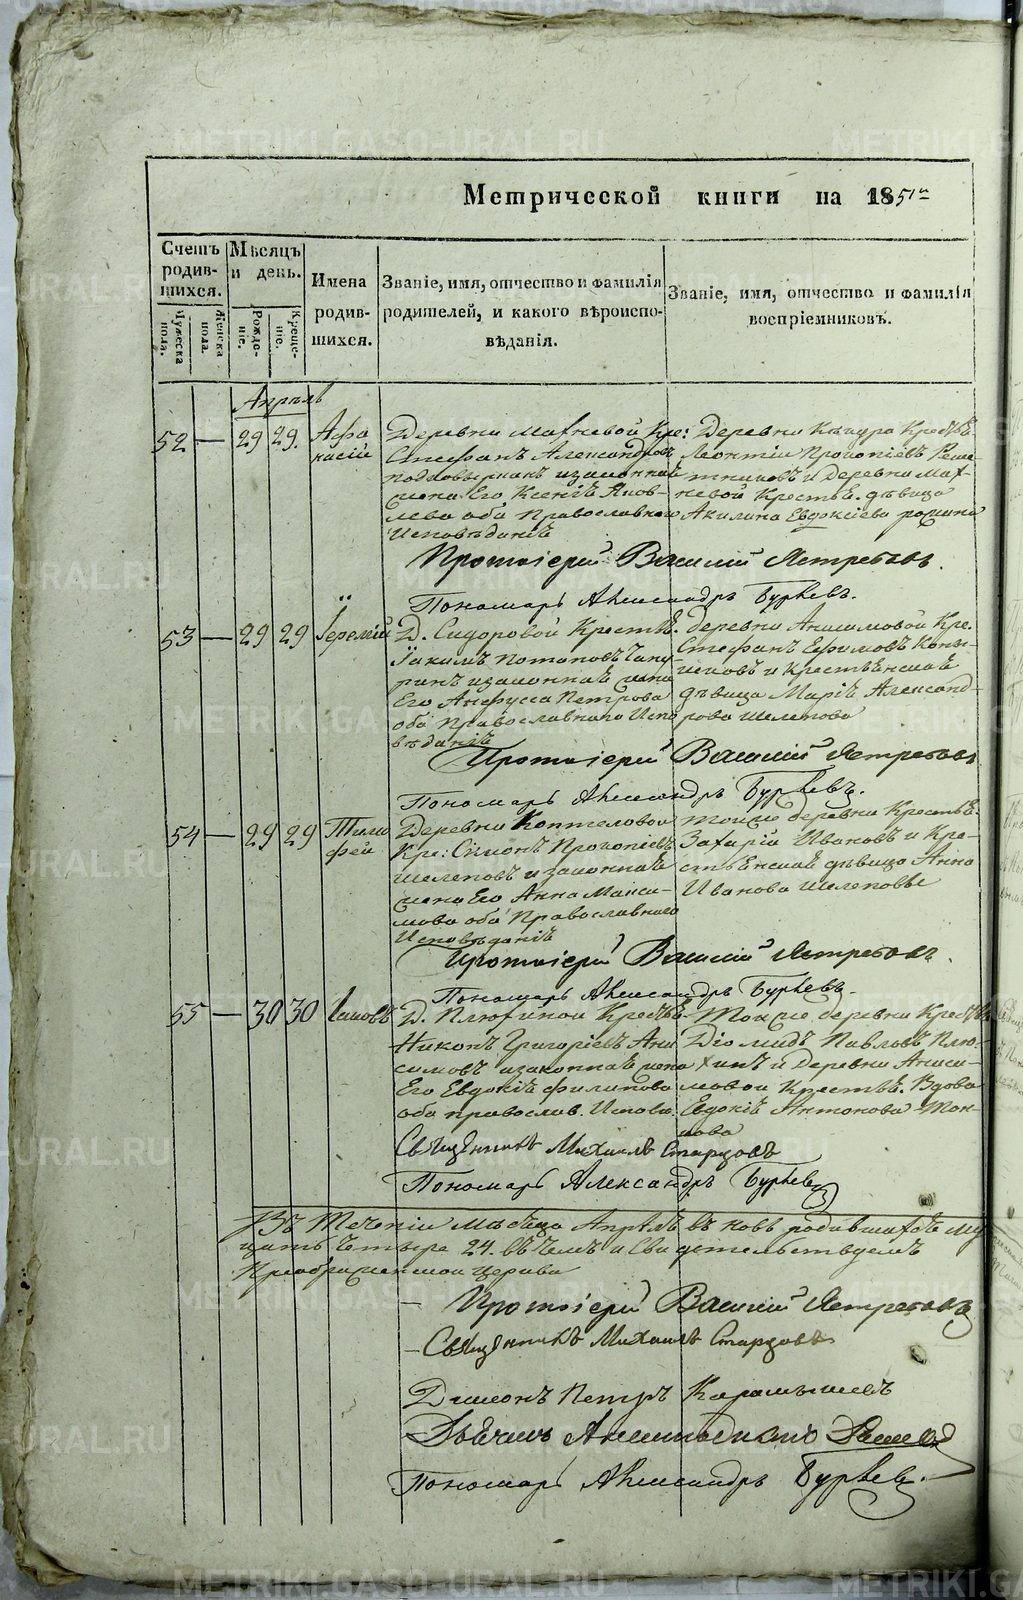 Метрической книги на 1851й
Счетъ родившихся.
Мѣсяцъ и день.
Имена родившихся.
Званіе, имя, отчество и фамилія родителей, и какого вѣроисповѣданія.
Званіе, имя, отчество и фамилія воспріемниковъ.
Мужеска пола.
Женска пола.
Рожденіе.
Крещеніе.
Апрѣль
52 — 29 29. Афанасій
Деревни Махневой Кре:
Стефанъ Александровъ
изаконная
жена Его Ксенія Яковлева
оба Православнаго
Исповѣданія
Деревни Кресть.
Леонтій Прокопіевъ
и Деревни Махневой
Кресть. дѣвица
Акилина Евдокіева
Протоіерей Василій Ястребовъ.
Пономарь Александръ Бурьевъ.
53 — 29 29 Іеремій
Д. Сидоровой Кресть.
Іакимъ Потаповъ
изаконная жена
Его Анфуса Петрова
оба Православнаго Исповѣданія
Деревни Анисимовой Кре.
Стефанъ Ефимовъ
и Крестьенская
дѣвица Марія Александрова
Шелепова
Протоіерей Василій Ястребовъ
Пономарь Александръ Бурьевъ.
54 — 29 29 Тимофей
Деревни Коптеловой
Кре: Симонъ Прокопіевъ
Шелеповъ изаконная
жена Его Анна Максимова
оба Православнаго
Исповѣданія
Тойже деревни Кресть.
Захарій Ивановъ и Крестьенская
дѣвица Анна
Иванова Шелеповы
Протоіерей Василій Ястребовъ.
Пономарь Александръ Бурьевъ.
55 — 30 30 Іаковъ
Д. Плюхиной Кресть.
Никонъ Григоріевъ Анисимовъ
изаконная жена
Его Евдокія Филипова
оба православ. Исповѣ.
Тойже деревни Кресть.
Діомидъ Павловъ Плюхинъ
и Деревни Анисимовой
Кресть. Вдова
Евдокія Антонова
Священникъ Михаилъ Старцовъ
Пономарь Александръ Бурьевъ
Въ Теченіи Мѣсяца Апрѣля вновь родившихся
четыре 24. въ чемъ и Свидетельствуемъ
Преображенской церкви
— Протоіерей Василій Ястребовъ
— Священникъ Михаилъ Старцовъ
Диаконъ Петръ Карамышевъ
Дьячекъ
Пономарь Александръ Бурьевъ.
METRIKI.GASO-URAL.RU